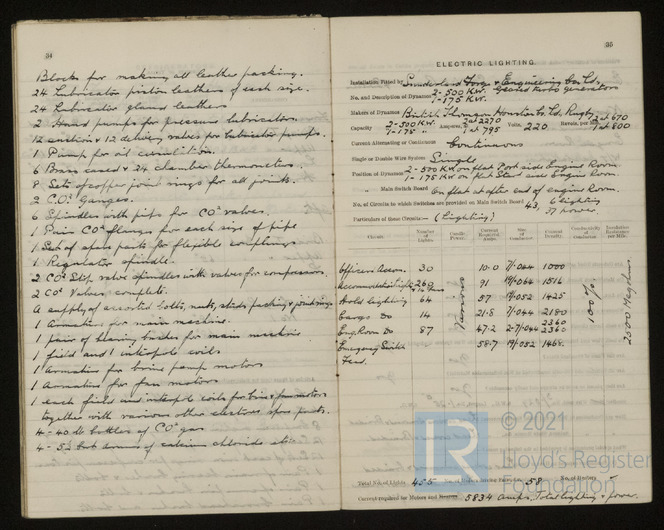 34
Blocks for making all leather packing.
24 Lubricator piston leathers of each size.
24 Lubricator gland leathers
2 Hand pumps for pressure lubricators.
12 suction & 12 delivery valves for lubricator pumps.
1 Pump for oil circulation.
6 Brass cased & 24 chamber thermometers.
8 Sets of copper joint rings for all joints.
2 CO² Gauges.
6 Spindles with pips for CO² valves.
1 Pair CO² flanges for each size of pipe
1 Set of spare parts for flexible couplings
1 Regulator spindle.
2 CO² Stop valve spindles with valves for compressors.
2 CO² Valves complete.
A supply of assorted bolts, nuts, studs, packing & joint rings
1 Armature for main machine.
1 pair of bearing bushes for main machine
1 field and interpole coils
1 Armature for brine pump motors
1 Armature for fan motors
1 each field and interpole coils for brine & fan motors
together with various other electrical spare parts.
4 - 40 lb bottles of CO² gas
4 - 5½ cwt drums of calcium chloride etc
35
ELECTRIC LIGHTING.
Installation Fitted by Sunderland Forge & Engineering Co. Ld.
No. and Description of Dynamos 2 - 500 KW. Geared Turbo generators
1 - 175 KW.
Makers of Dynamos British Thomson Houston Co. Ld, Rugby
Capacity 2 - 500 KW. Amperes, 2 at 2270 Volts, 220 Revols. per Min. 2 at 670
1 - 175 " 1 at 795 1 at 800
Current Alternating or Continuous Continuous
Single or Double Wire System Single
Position of Dynamos 2 - 500 KW on flat Port side Engine Room
1 - 175 KW on flat Star'd side Engine Room.
" Main Switch Board On flat at after end of engine Room.
No. of Circuits to which Switches are provided on Main Switch Board 43, 6 lighting
37 power.
Particulars of these Circuits:— (Lighting)
Circuit. Number of Lights. Candle Power. Current Required Amps. Size of Conductor. Current Density. Conductivity of Conductor. Insulation Resistance per Mile.
Officers Accom. 30 10.0 7/.044 1000
Accommodation 91 19/.064 1516
Hold Lighting 64 Various 57 19/.052 1425 100% 2500 Megohms.
Cargo Do 14 21.8 7/.044 2180
Eng. Room Do 87 47.2 2-7/.044 2360
2360
Emergency Switch 58.7 19/.052 1468.
Feed.
Total No. of Lights 455 No. of Motors driving Fans, &c. 58 No. of Heaters
Current required for Motors and Heaters 5834 amps. Total lighting & power.
LR
© 2021
Lloyd's Register
Foundation